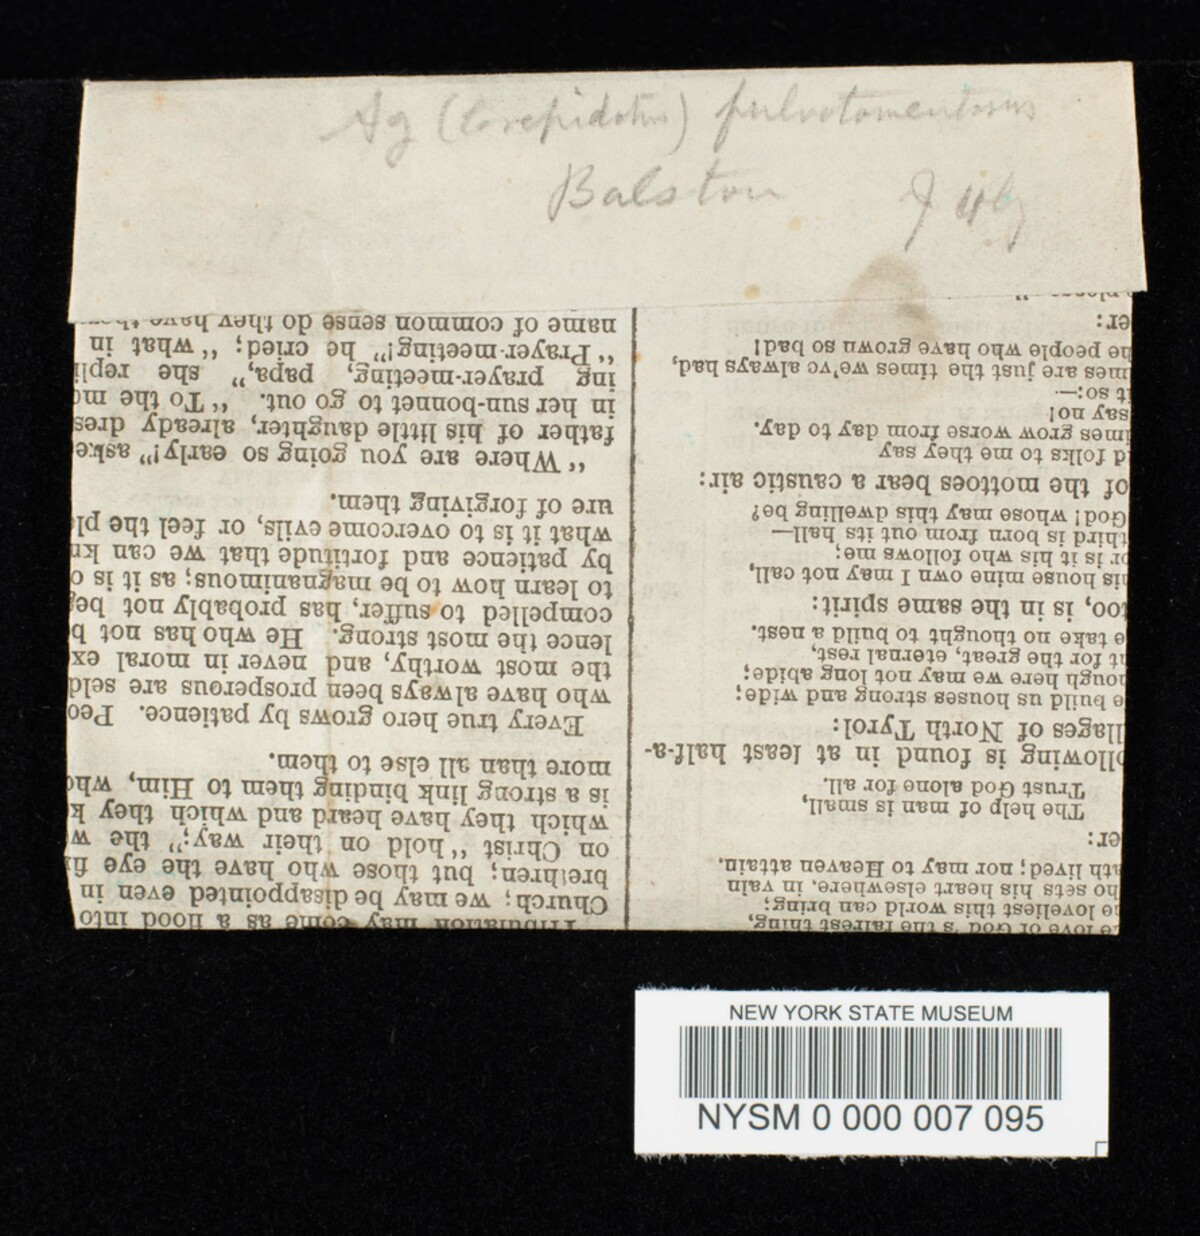 Ag (Crepidotus) pulvotomentosus
Balston July
love of God's the fairest thing,
loveliest this world can bring;
ho sets his heart elsewhere, in vain
ath lived; nor may to Heaven attain.
er:
The help of man is small,
Trust God alone for all.
ollowing is found in at least half-a-
llages of North Tyrol:
e build us houses strong and wide;
hough here we may not long abide;
ut for the great, eternal rest,
e take no thought to build a nest.
too, is in the same spirit:
his house mine own I may not call,
or is it his who follows me;
third is born from out its hall—
God! whose may this dwelling be?
of the mottoes bear a caustic air:
d folks to me they say
imes grow worse from day to day.
say no!
it so:—
mes are just the times we've always had,
he people who have grown so bad!
er:
Tribulation may come as a flood into
Church; we may be disappointed even in
brethren; but those who have the eye fi
on Christ "hold on their way;" the w
which they have heard and which they k
is a strong link binding them to Him, who
more than all else to them.
Every true hero grows by patience. Peo
who have always been prosperous are seld
the most worthy, and never in moral ex
lence the most strong. He who has not b
compelled to suffer, has probably not beg
to learn how to be magnanimous; as it is o
by patience and fortitude that we can kn
what it is to overcome evils, or feel the ple
ure of forgiving them.
"Where are you going so early!" aske
father of his little daughter, already dres
in her sun-bonnet to go out. "To the mo
ing prayer-meeting, papa," she repli
"Prayer-meeting!" he cried; "what in
name of common sense do they have
NEW YORK STATE MUSEUM
NYSM 0 000 007 095